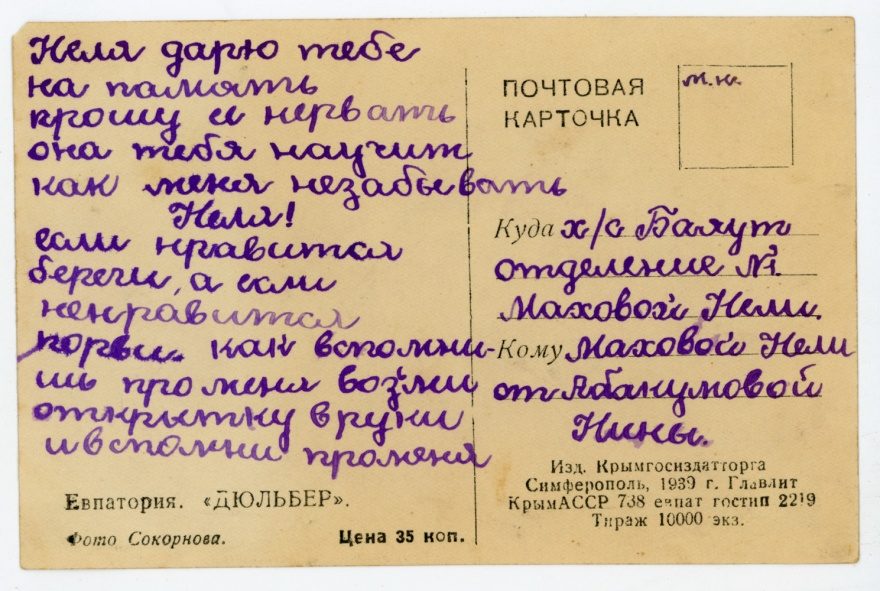 Неля дарю тебе
на память
прошу её нервать
она тебя научит
как меня незабывать
Неля!
если нравится
береги, а если
ненравится
порви. как вспомни-
шь про меня возьми
открытку в руки
и вспомни променя
Евпатория. «ДЮЛЬБЕР».
Фото Сокорнова. Цена 35 коп.
ПОЧТОВАЯ
КАРТОЧКА
м.н.
Куда х/с Баяут
отделение №1.
Маховой Нели.
Кому Маховой Нели
от Абакумовой
Нины.
Изд. Крымгосиздатторга
Симферополь, 1939 г. Главлит
КрымАССР 738 евпат гостип 2219
Тираж 10000 экз.